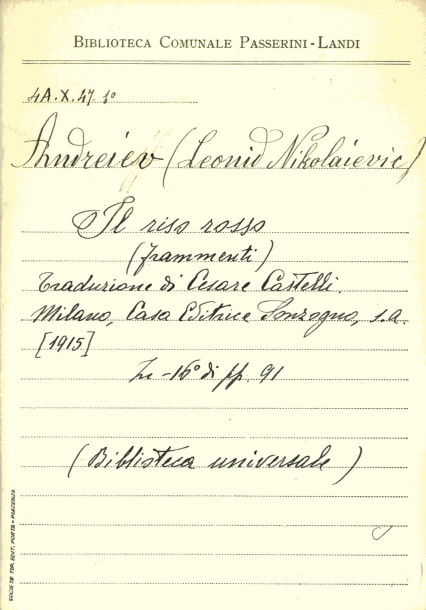 BIBLIOTECA COMUNALE PASSERINI-LANDI
4A.X.47.1º
Andreiev (Leonid Nikolaievic)
Il riso rosso
(frammenti)
Traduzione di Cesare Castelli.
Milano, Casa Editrice Sonzogno, s.a.
[1915]
In-16º di pp. 91
(Biblioteca universale)
SOCIETÀ TIP. EDIT. PORTA - PIACENZA